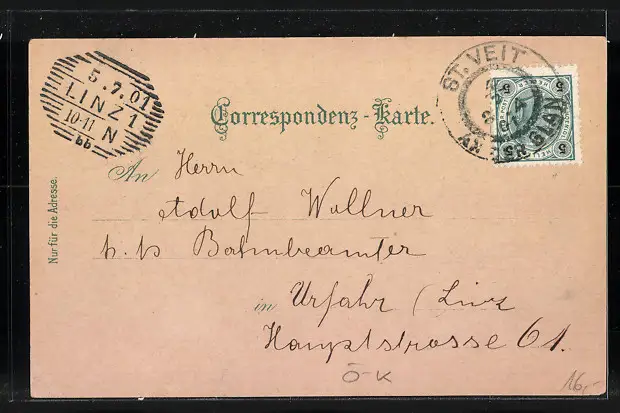 5.7.01
LINZ 1
10-11 N
bb
ST. VEIT
AN DER GLAN
5
5
5
Correspondenz-Karte.
Nur für die Adresse.
An Herrn
Adolf Wollner
Bahnbeamter
in Urfahr / Linz
Hauptstrasse 61.
Ö-K
16,-